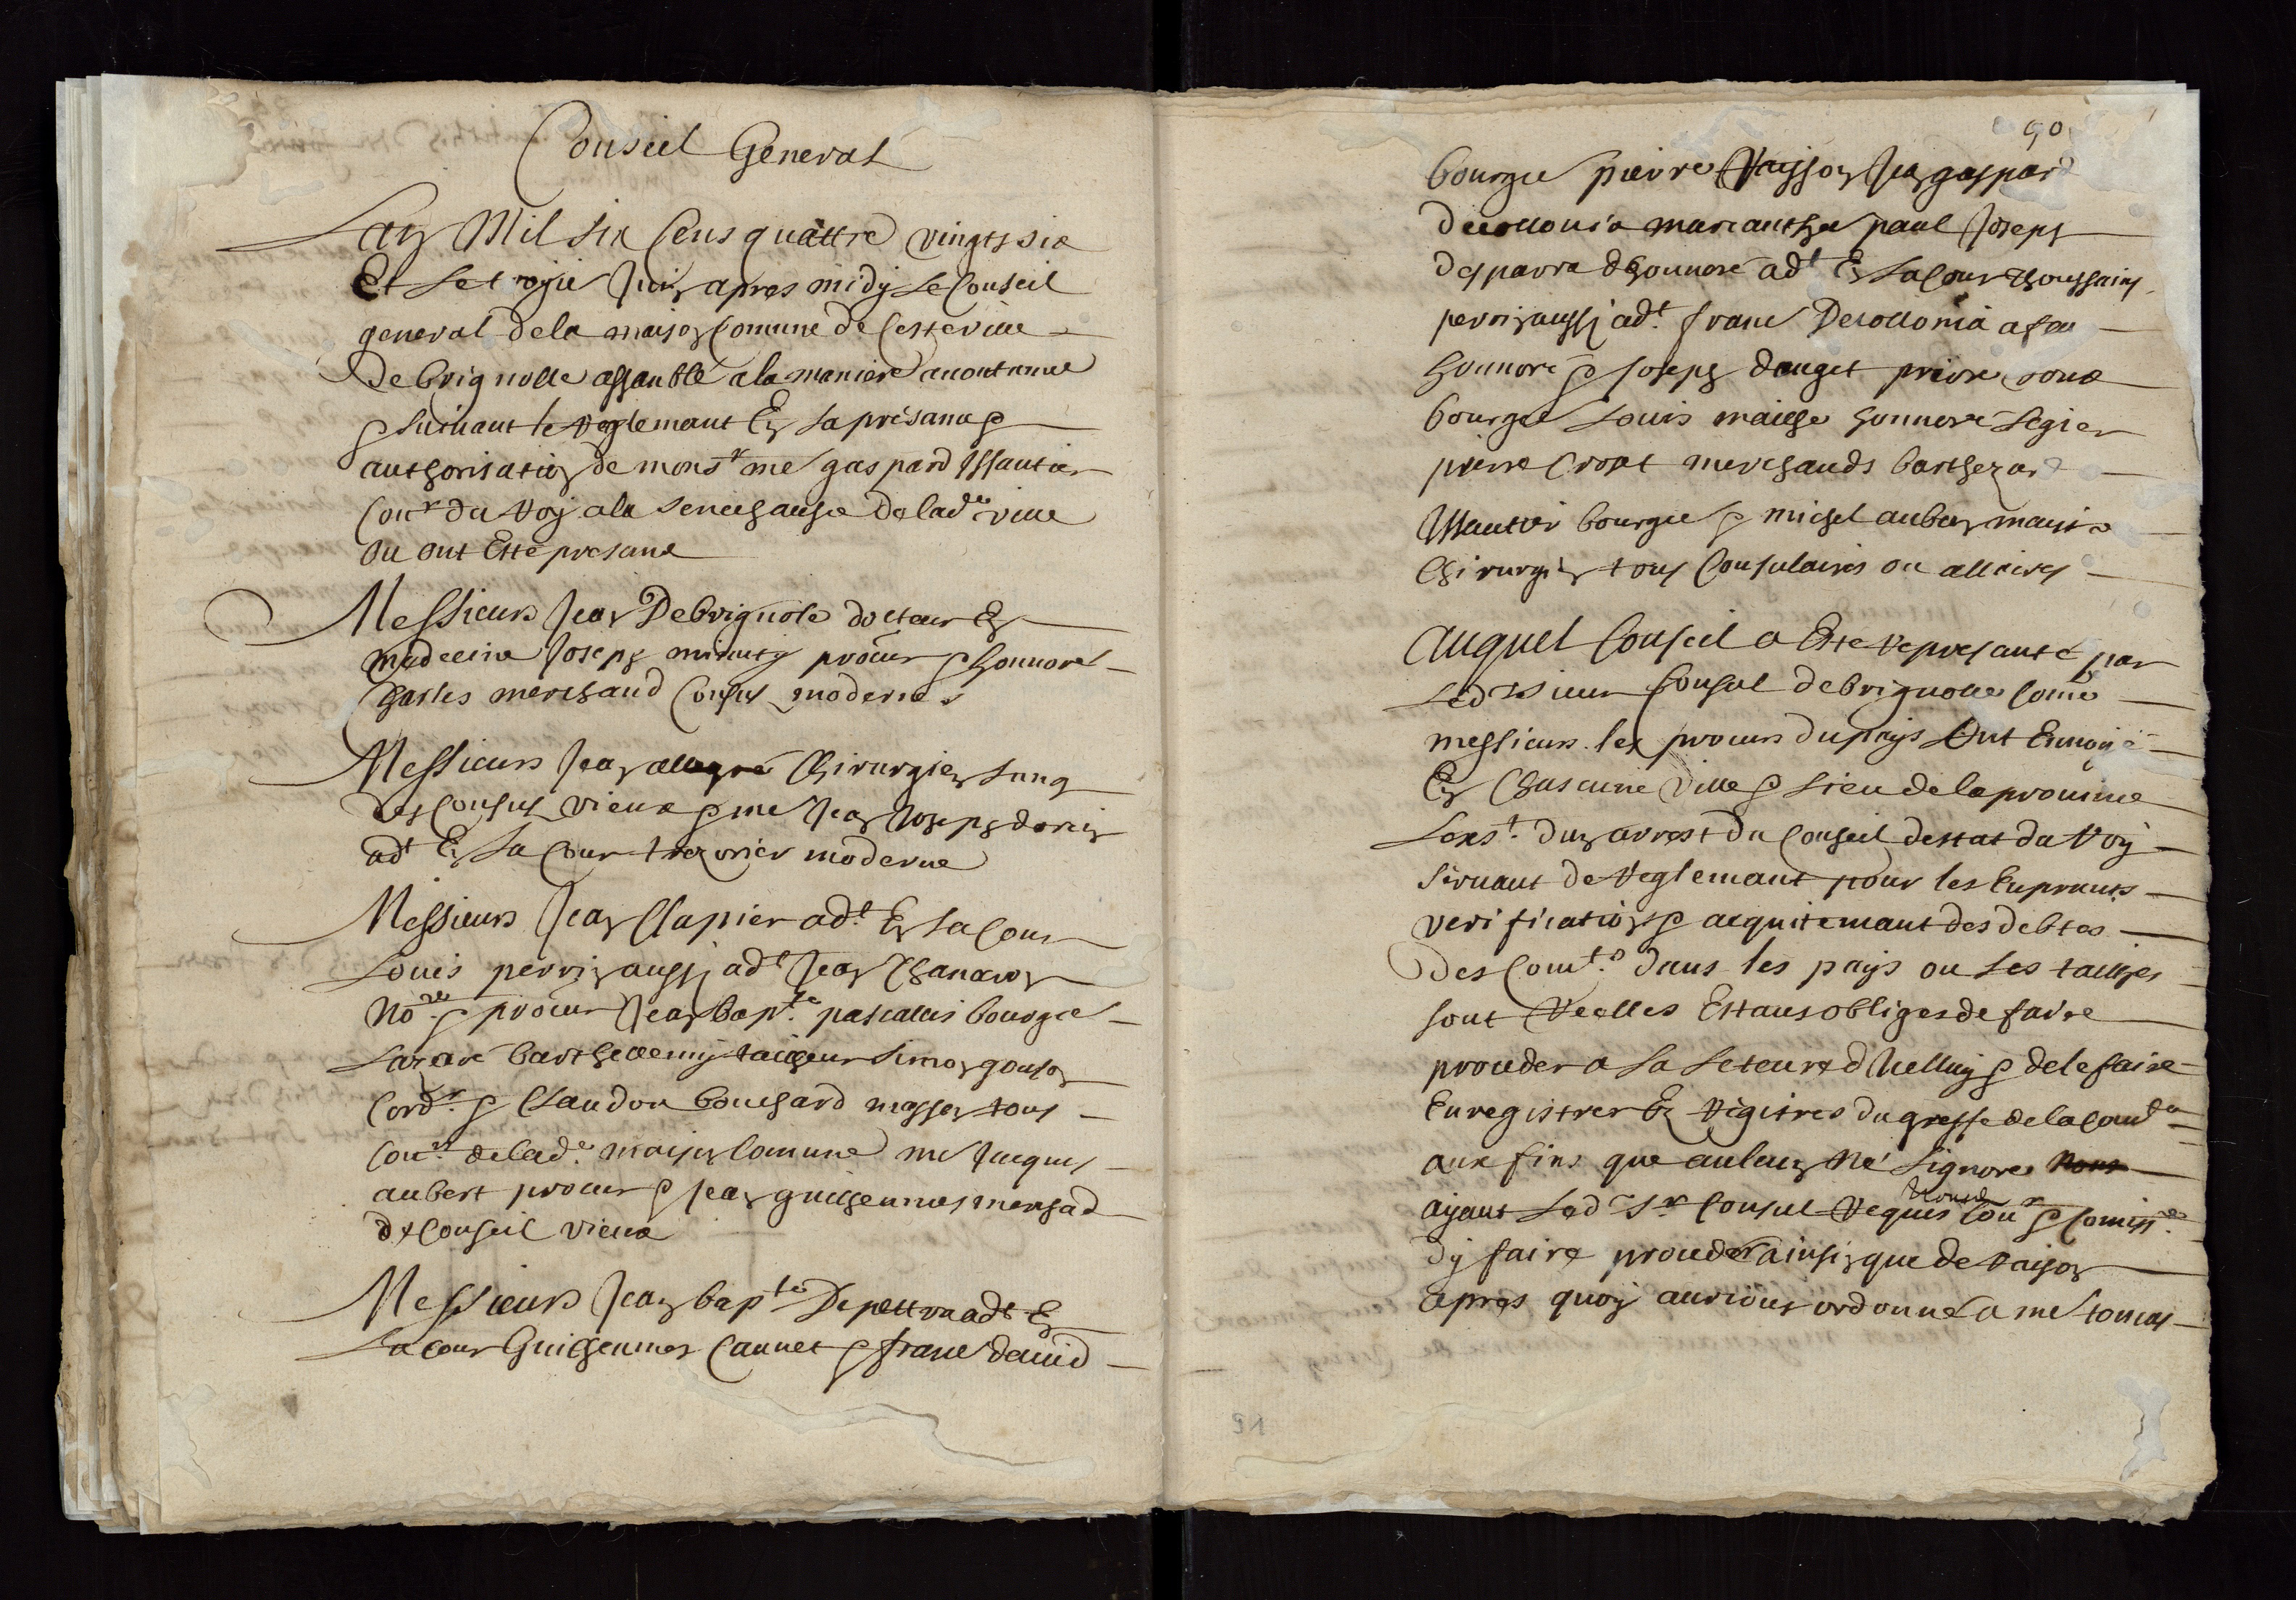 Conseil General
Lan Mil six Cens quattre vingts six
Et le troisie Juin apres midy le Conseil
general de la maison Comune de Cesteville
de brignolle assamblé a la maniere acoutumee
& suivant le reglemant En la présance &
authorisation de mons.r me gaspard Issautier
Con.r du Roy a la senechausée de lad.e ville
ou ont Esté presans
Messieurs Jean De brignole docteur En
medecine Joseph minuty procur & honnoré
Charles merchand Consuls modernes
Messieurs Jean allegre Chirurgien lung
des Consuls vieux & me Jean Joseph
ad.t En la Cour trezorier moderne
Messieurs Jean Clapier ad.t En la Cour
Louis perrin aussy ad.t Jean Chanavon
no.re & procur Jean bap.te pascallis bourgeo
Lazare barthellemy tailheur simon
Cord.r & Claudon bouchard masson tous
Con.rs de lad.e maison Comune me Jacques
aubert procur & Jean guilheaumes merchad
de Conseil vieux
Messieurs Jean bap.te De pettra ad.t En
La Cour Guilheaumes Cannet & franc david
90
bourgeo pierre Raisson Jean gaspard
Decollonia marc anthoe paul Joseph
desparra dhonnoré ad.t En la Cour thoussains
perrin aussy ad.t franc Decollonia a feu
honnoré & Joseph dauget prive roux
bourgeo Louis mailhe honnoré Legier
pierre merchands
Issautier bourgeo & michel auben maistre
Chirurgien tous Consulaires ou
Auquel Conseil a Esté représanté par
Led sieur Consul de brignolle Come
messieurs les procurs du pays Ont Envoyé
En Chascune ville & lieu de la province
Lexst. dun arrest du Conseil destat du Roy
servant de Reglemant pour les Enprunts
verification & acquitemant des debtes
des Com.tes dans les pays ou les tailhes
sont Reelles Estans obliges de faire
proceder a la leteure dIcelluy & de le faire
Enregistrer En Régitres du greffe de la Cand
aux fins que aulcun ne Lignore
ayant Led S.r Consul Requis Con.r & Comiss.re
dy faire proceder ainsin que de raison
apres quoy aurions ordonné a me tomas
91